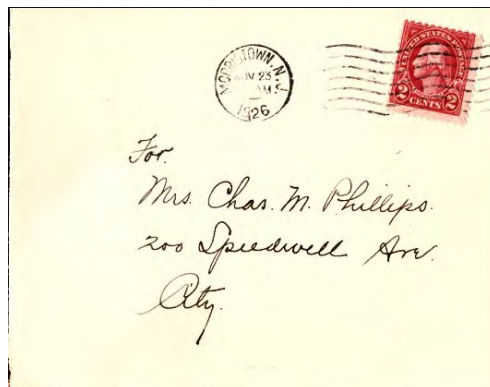 MORRISTOWN, N.J.
NOV 23
AM
1926
UNITED STATES POSTAGE
2 CENTS 2
For.
Mrs. Chas. M. Phillips.
200 Speedwell Ave.
City.